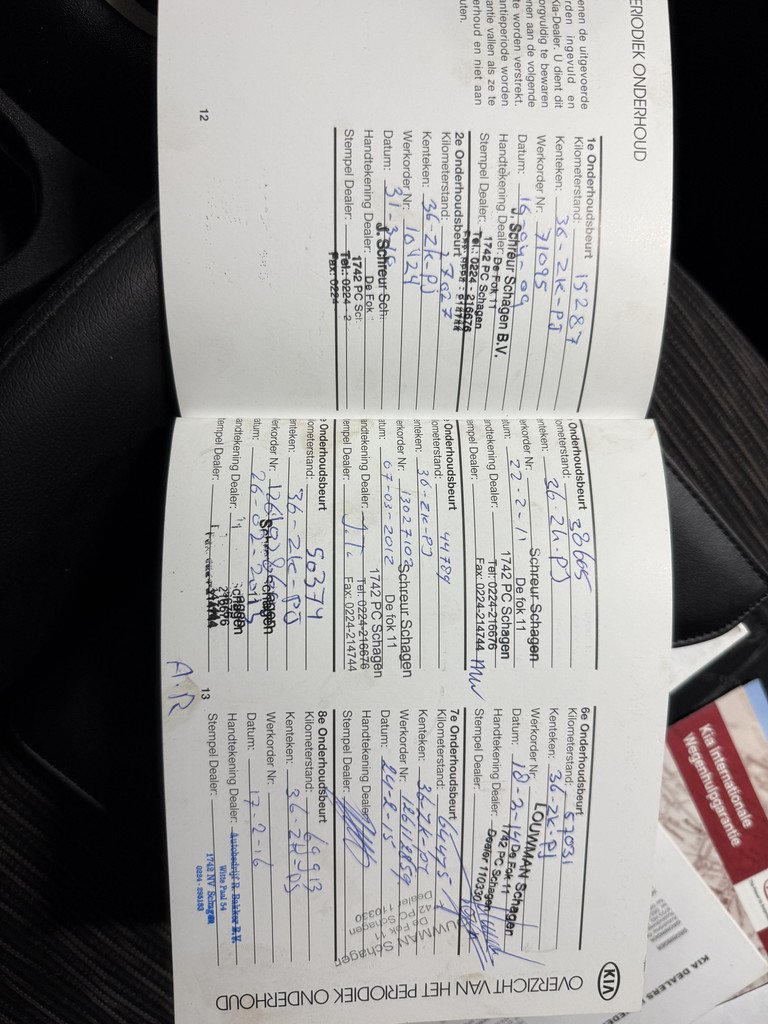 PERIODIEK ONDERHOUD
enen de uitgevoerde
rden ingevuld en
Kia-Dealer. U dient dit
orgvuldig te bewaren
nen aan de volgende
te worden verstrekt.
antieperiode worden
antie vallen als ze te
erhoud en niet aan
uten.
1e Onderhoudsbeurt
Kilometerstand: 15287
Kenteken: 36-ZK-PJ
Werkorder Nr: 71095
Datum: 16-04-09
Handtekening Dealer:
Stempel Dealer:
J. Schreur Schagen B.V.
De Fok 11
1742 PC Schagen
Tel.: 0224 - 216676
Fax: 0224 - 214744
2e Onderhoudsbeurt
Kilometerstand: 27027
Kenteken: 36-ZK-PJ
Werkorder Nr: 10424
Datum: 31-3-10
Handtekening Dealer:
Stempel Dealer:
J. Schreur Sch
De Fok
1742 PC Sch
Tel.: 0224 - 2
Fax: 0224 -
12
Onderhoudsbeurt
ometerstand: 38605
enteken: 36-ZK-PJ
erkorder Nr:
atum: 22-2-11
andtekening Dealer:
empel Dealer:
Schreur Schagen
De fok 11
1742 PC Schagen
Tel: 0224-216676
Fax: 0224-214744
Onderhoudsbeurt
lometerstand: 44789
enteken: 36-ZK-PJ
erkorder Nr: 13027102
atum: 07-03-2012
andtekening Dealer:
empel Dealer:
Schreur Schagen
De fok 11
1742 PC Schagen
Tel: 0224-216676
Fax: 0224-214744
Onderhoudsbeurt
lometerstand: 50374
enteken: 36-ZK-PJ
erkorder Nr:
atum: 26-02-2013
andtekening Dealer:
tempel Dealer:
Schagen
216676
214744
A.R
13
6e Onderhoudsbeurt
Kilometerstand: 57031
Kenteken: 36-ZK-PJ
Werkorder Nr:
Datum: 18-2-14
Handtekening Dealer:
Stempel Dealer:
LOUWMAN Schagen
De Fok 11
1742 PC Schagen
Dealer 110330
7e Onderhoudsbeurt
Kilometerstand: 64475
Kenteken: 36-ZK-PJ
Werkorder Nr:
Datum: 24-2-15
Handtekening Dealer:
Stempel Dealer:
OUWMAN Schagen
De Fok 11
42 PC Schagen
Dealer 110330
8e Onderhoudsbeurt
Kilometerstand: 69913
Kenteken: 36-ZK-PJ
Werkorder Nr:
Datum: 17-2-16
Handtekening Dealer:
Stempel Dealer:
Autobedrijf R. Bakker B.V.
Witte Paal 54
1742 NV Schagen
KIA
OVERZICHT VAN HET PERIODIEK ONDERHOUD
Kia Internationale
Wegenhulpgarantie
KIA DEALERS